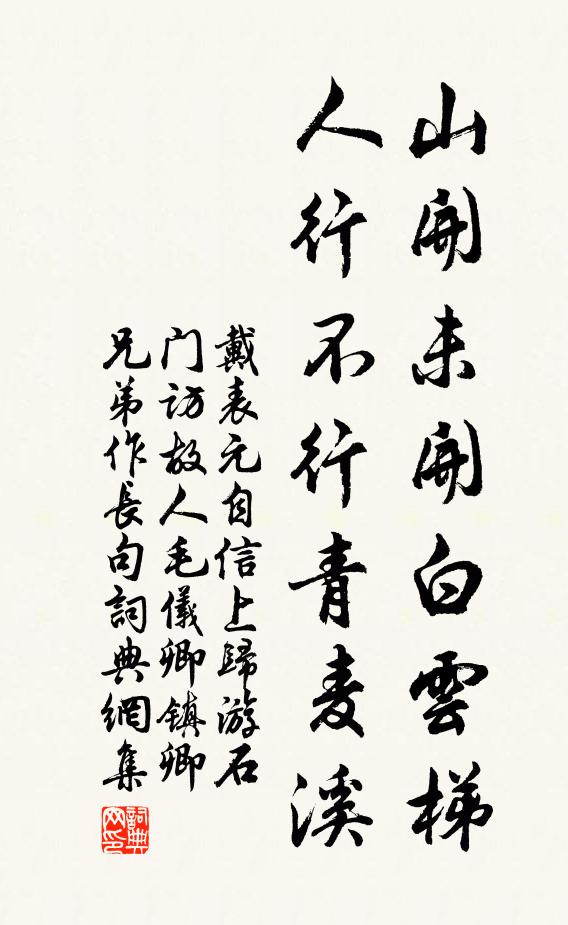 山開未開白雲梯
人行不行青麦溪
戴表元自信上歸游石
门訪故人毛儀卿鎮卿
兄弟作長句詞典網集
詞典
网印